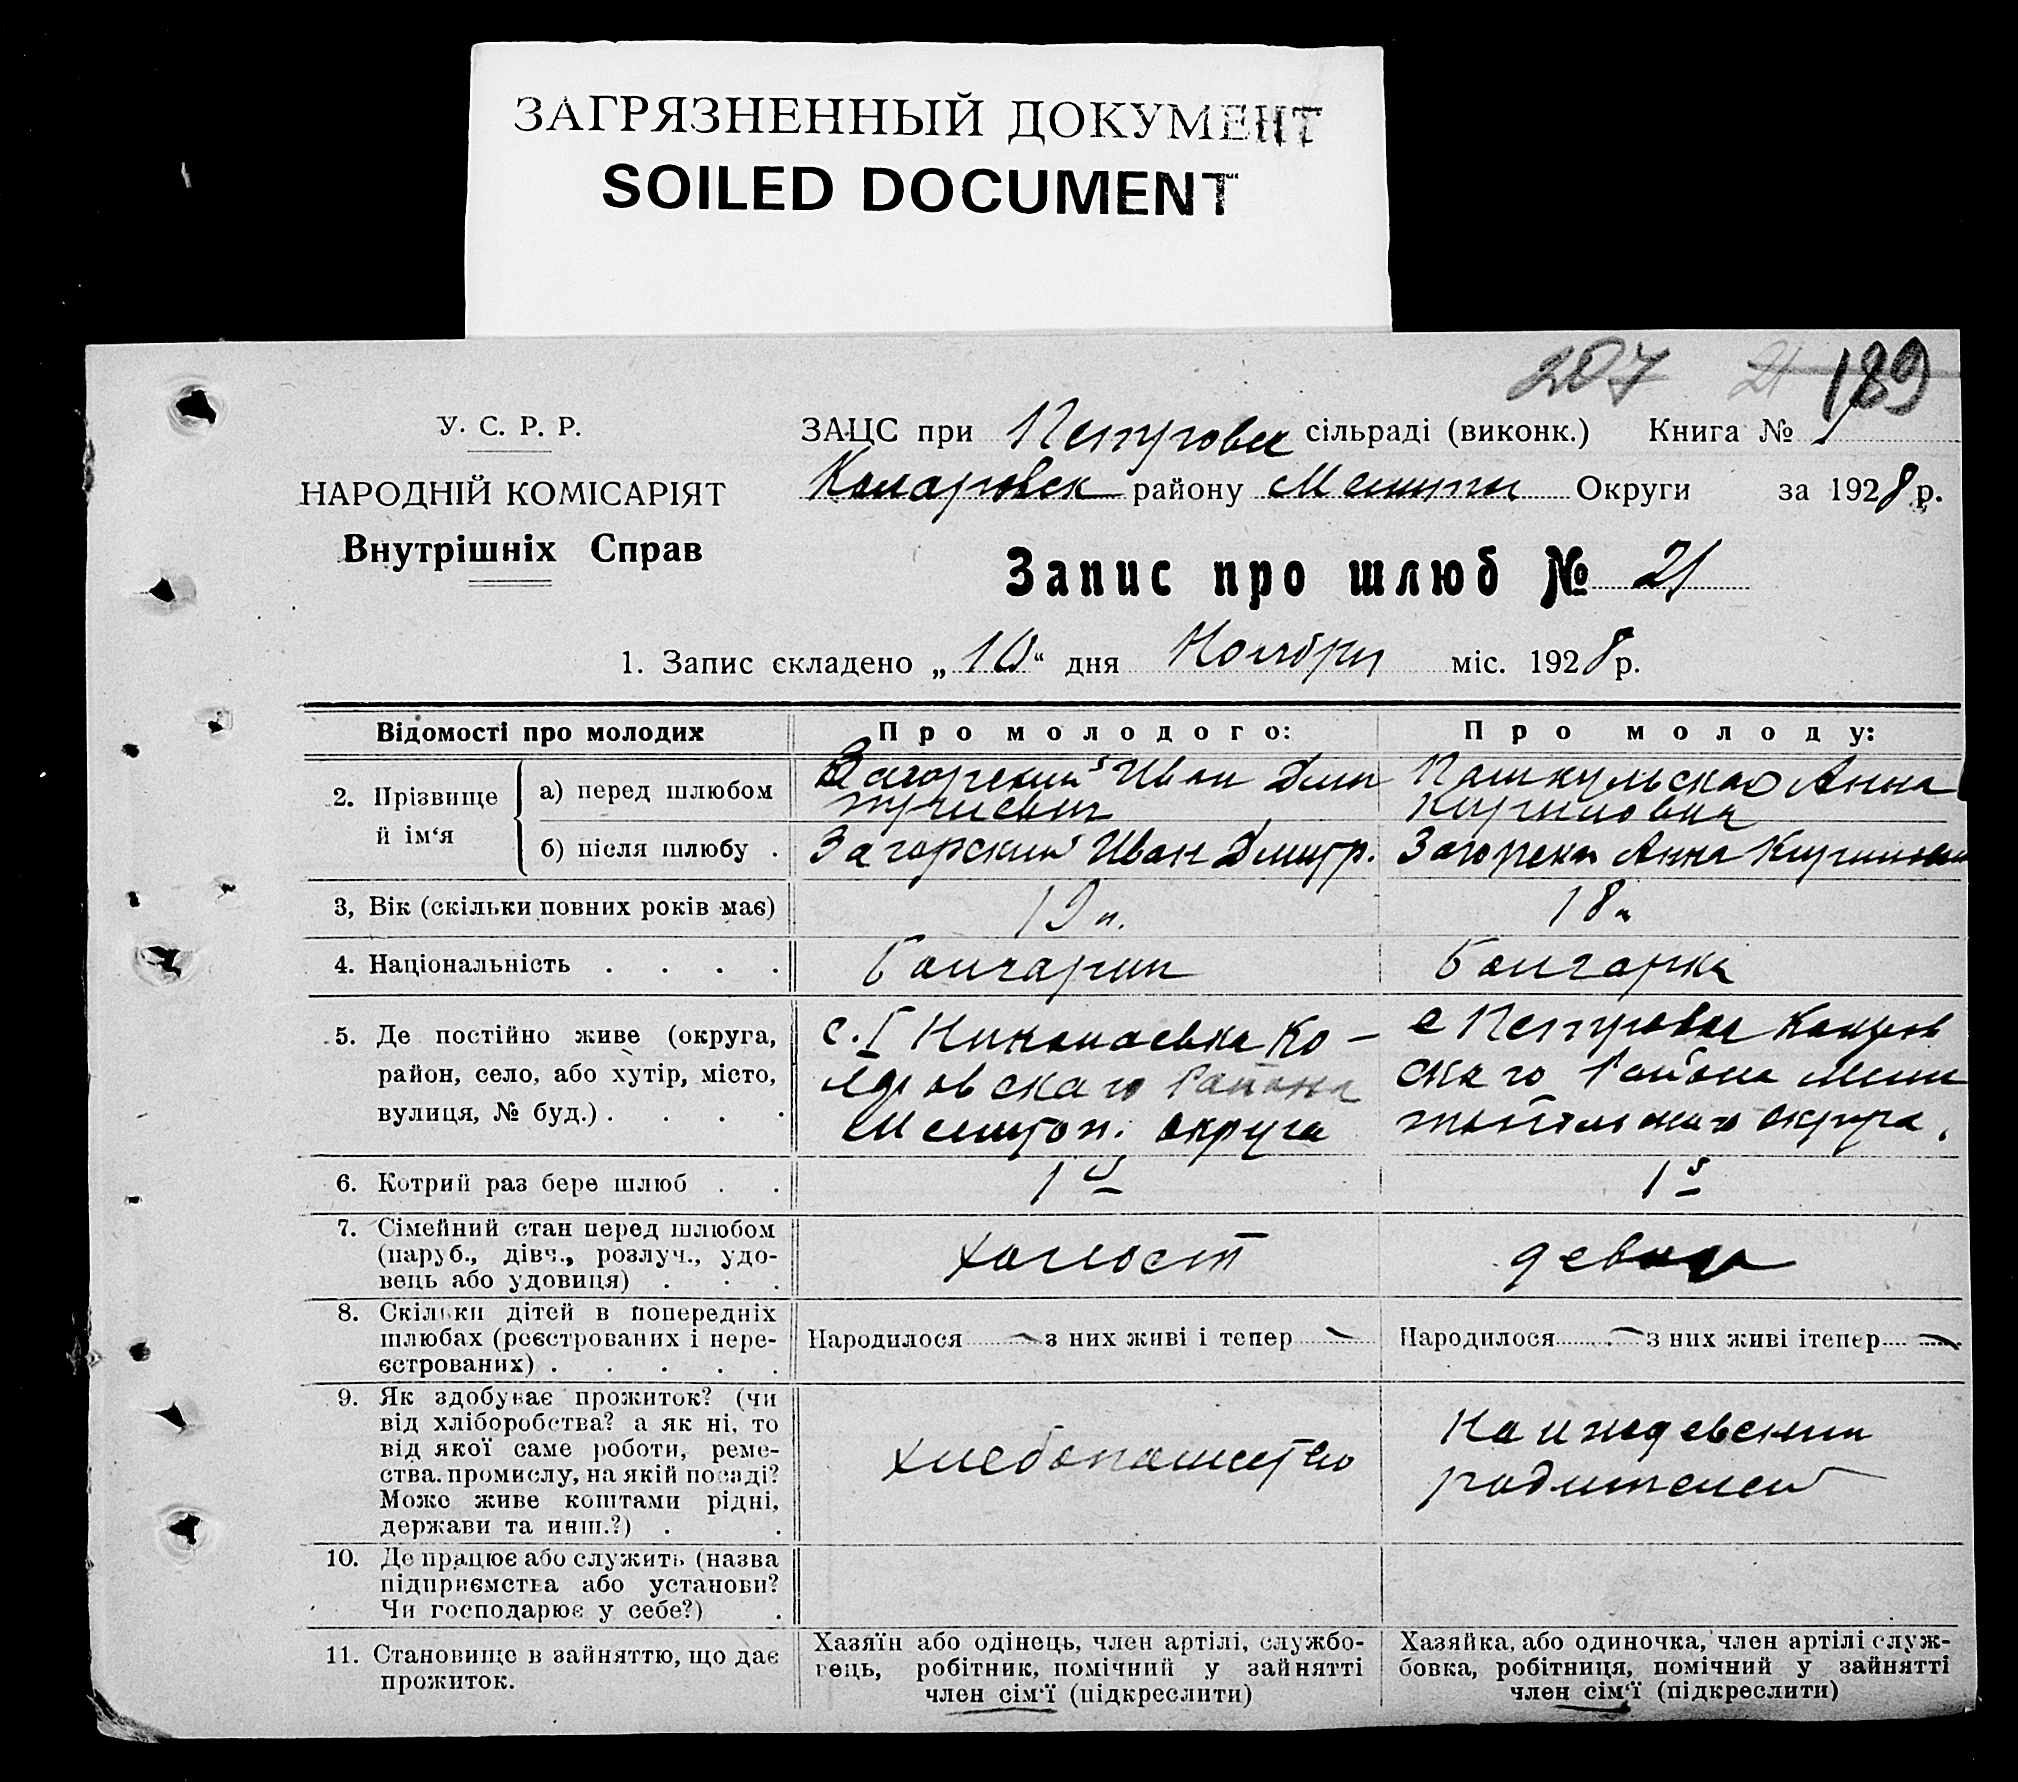 ЗАГРЯЗНЕННЫЙ ДОКУМЕНТ
SOILED DOCUMENT
207 21 189
У. С. Р. Р.
НАРОДНІЙ КОМІСАРІЯТ
Внутрішніх Справ
ЗАЦС при Петровск сільраді (виконк.) Книга № 1
Коларовск району Мелитоп Округи за 1928 р.
Запис про шлюб № 21
1. Запис складено „10“ дня Ноября міс. 1928 р.
Відомості про молодих
Про молодого:
Про молоду:
2. Прізвище й ім‘я
а) перед шлюбом
Загорский Иван Дми
триевич
Пашкульская Анна
Кириловна
б) після шлюбу .
Загорский Иван Дмитр.
Загорска Анна Кириловн
3, Вік (скільки повних років має)
19 л.
18 л
4. Національність . . . .
Болгарин
Болгарка
5. Де постійно живе (округа,
район, село, або хутір, місто,
вулиця, № буд.) . . . .
с. I Николаевка Ко-
ляровскаго Района
Мелитоп. округа
с Петровка Коляров
скаго Района Мели
топольскаго округа.
6. Котрий раз бере шлюб . .
1й
1й
7. Сімейний стан перед шлюбом
(паруб., дівч., розлуч., удо-
вець або удовиця) . . .
холост
девица
8. Скільки дітей в попередніх
шлюбах (реєстрованих і нере-
єстрованих) . . . . .
Народилося — з них живі і тепер —
Народилося — з них живі і тепер —
9. Як здобуває прожиток? (чи
від хліборобства? а як ні, то
від якої саме роботи, реме-
ства, промислу, на якій посаді?
Може живе коштами рідні,
держави та инш.?) . .
хлебопашество
На иждевении
родителей
10. Де працює або служить (назва
підприємства або установи?
Чи господарює у себе?) .
11. Становище в зайняттю, що дає
прожиток.
Хазяїн або одінець, член артілі, службо-
вець, робітник, помічний у зайнятті
член сім‘ї (підкреслити)
Хазяйка, або одиночка, член артілі служ-
бовка, робітниця, помічний у зайнятті
член сім‘ї (підкреслити)